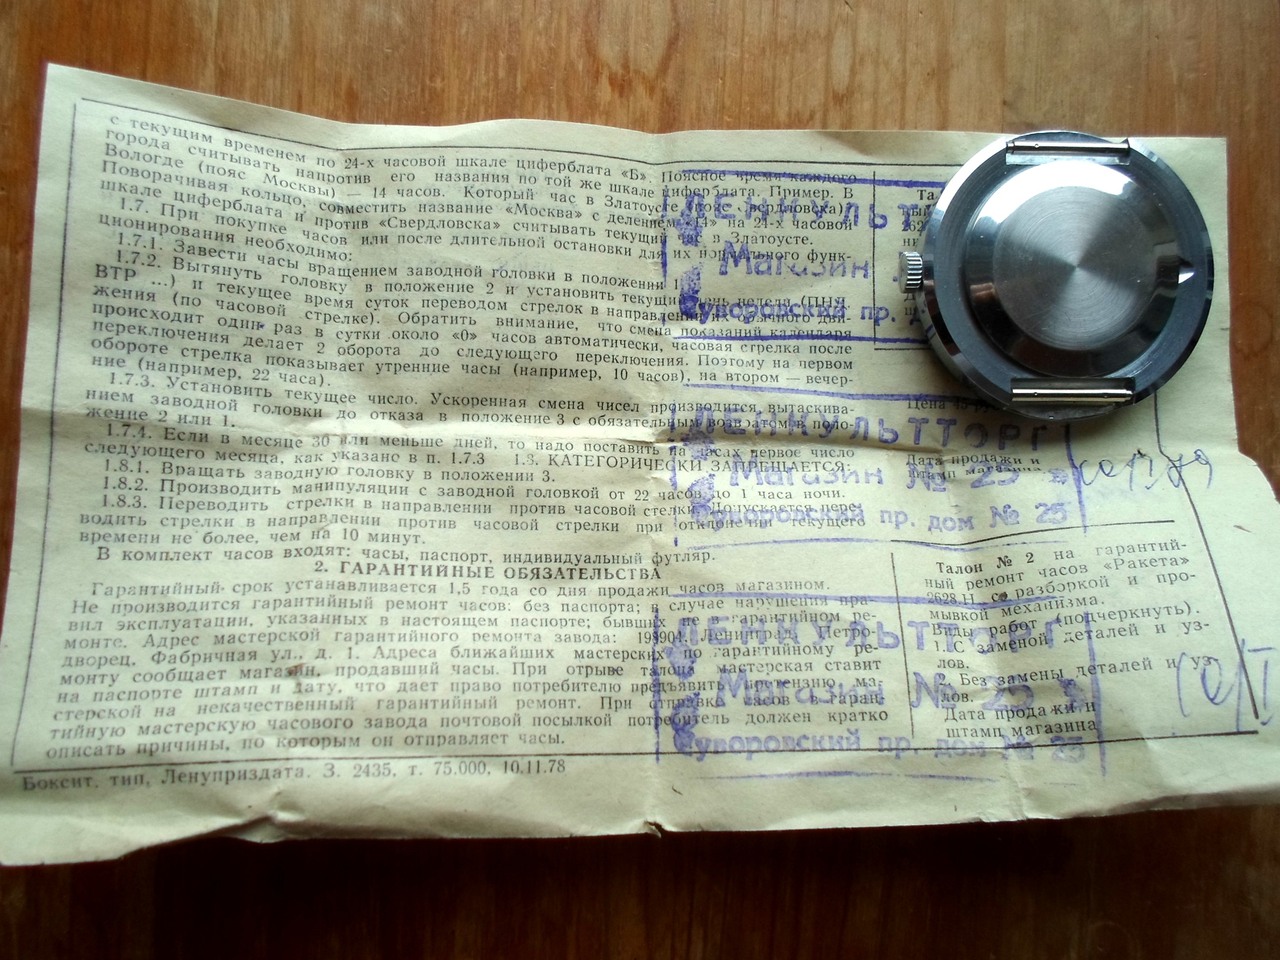 с текущим временем по 24-х часовой шкале циферблата «Б». Поясное время каждого
города считывать напротив его названия по той же шкале циферблата. Пример. В
Вологде (пояс Москвы) — 14 часов. Который час в Златоусте
Поворачивая кольцо, совместить название «Москва» с делением «14» на 24-х часовой
шкале циферблата и против «Свердловска» считывать текущий час в Златоусте.
1.7. При покупке часов или после длительной остановки для их нормального функ-
ционирования необходимо:
1.7.1. Завести часы вращением заводной головки в положении
1.7.2. Вытянуть головку в положение 2 и установить текущий день недели (ПНД,
ВТР ...) и текущее время суток переводом стрелок в направлении
жения (по часовой стрелке). Обратить внимание, что смена показаний календаря
происходит один раз в сутки около «0» часов автоматически, часовая стрелка после
переключения делает 2 оборота до следующего переключения. Поэтому на первом
обороте стрелка показывает утренние часы (например, 10 часов), на втором — вечер-
ние (например, 22 часа).
1.7.3. Установить текущее число. Ускоренная смена чисел производится вытаскива-
нием заводной головки до отказа в положение 3 с обязательным возвратом в поло-
жение 2 или 1.
1.7.4. Если в месяце 30 или меньше дней, то надо поставить на часах первое число
следующего месяца, как указано в п. 1.7.3 1.3. КАТЕГОРИЧЕСКИ ЗАПРЕЩАЕТСЯ:
1.8.1. Вращать заводную головку в положении 3.
1.8.2. Производить манипуляции с заводной головкой от 22 часов до 1 часа ночи.
1.8.3. Переводить стрелки в направлении против часовой стелки. Допускается пере-
водить стрелки в направлении против часовой стрелки при отклонении текущего
времени не более, чем на 10 минут.
В комплект часов входят: часы, паспорт, индивидуальный футляр.
2. ГАРАНТИЙНЫЕ ОБЯЗАТЕЛЬСТВА
Гарантийный срок устанавливается 1,5 года со дня продажи часов магазином.
Не производится гарантийный ремонт часов: без паспорта; в случае нарушения пра-
вил эксплуатации, указанных в настоящем паспорте; бывших не в гарантийном ре-
монте. Адрес мастерской гарантийного ремонта завода: 198904, Ленинград, Петро-
дворец, Фабричная ул., д. 1. Адреса ближайших мастерских по гарантийному ре-
монту сообщает магазин, продавший часы. При отрыве талона мастерская ставит
на паспорте штамп и дату, что дает право потребителю предъявить претензию ма-
стерской на некачественный гарантийный ремонт. При отправке часов в гаран-
тийную мастерскую часового завода почтовой посылкой потребитель должен кратко
описать причины, по которым он отправляет часы.
Боксит. тип, Ленуприздата. З. 2435, т. 75.000, 10.11.78
Та
2628
Цена 45 ру
Дата продажи и
штамп магазина
Талон № 2 на гарантий-
ный ремонт часов «Ракета»
2628.Н со разборкой и про-
мывкой механизма.
Виды работ (подчеркнуть).
1. С заменой деталей и уз-
лов.
2. Без замены деталей и уз-
лов.
Дата продажи и
штамп магазина
ЛЕНКУЛЬТ
Магазин
Суворовский пр.
ЛЕНКУЛЬТТОРГ
Магазин № 25
Суворовский пр. дом № 25
ЛЕНКУЛЬТТОРГ
Магазин № 25
Суворовский пр. дом № 25